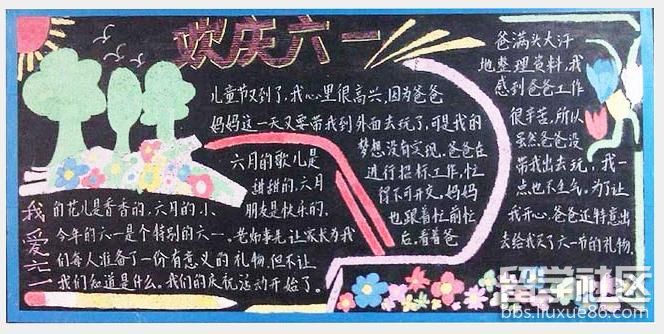 欢庆六一
儿童节又到了,我心里很高兴,因为爸爸
妈妈这一天又要带我到外面去玩了,可是我的
梦想没有实现,爸爸在
进行招标工作,忙
得不可开交,妈妈
也跟着忙前忙
后。看着爸
爸满头大汗
地整理资料,我
感到爸爸工作
很辛苦,所以
虽然爸爸没
带我出去玩,我一
点也不生气,为了让
我开心,爸爸还特意出
去给我买了六一节的礼物。
我爱六一
六月的歌儿是
甜甜的,六月
的花儿是香香的,六月的小
朋友是快乐的。
今年的六一是个特别的六一。老师事先让家长为我
们每人准备了一份有意义的礼物,但不让
我们知道是什么。我们的庆祝活动开始了。
留学社区
bbs.liuxue86.com